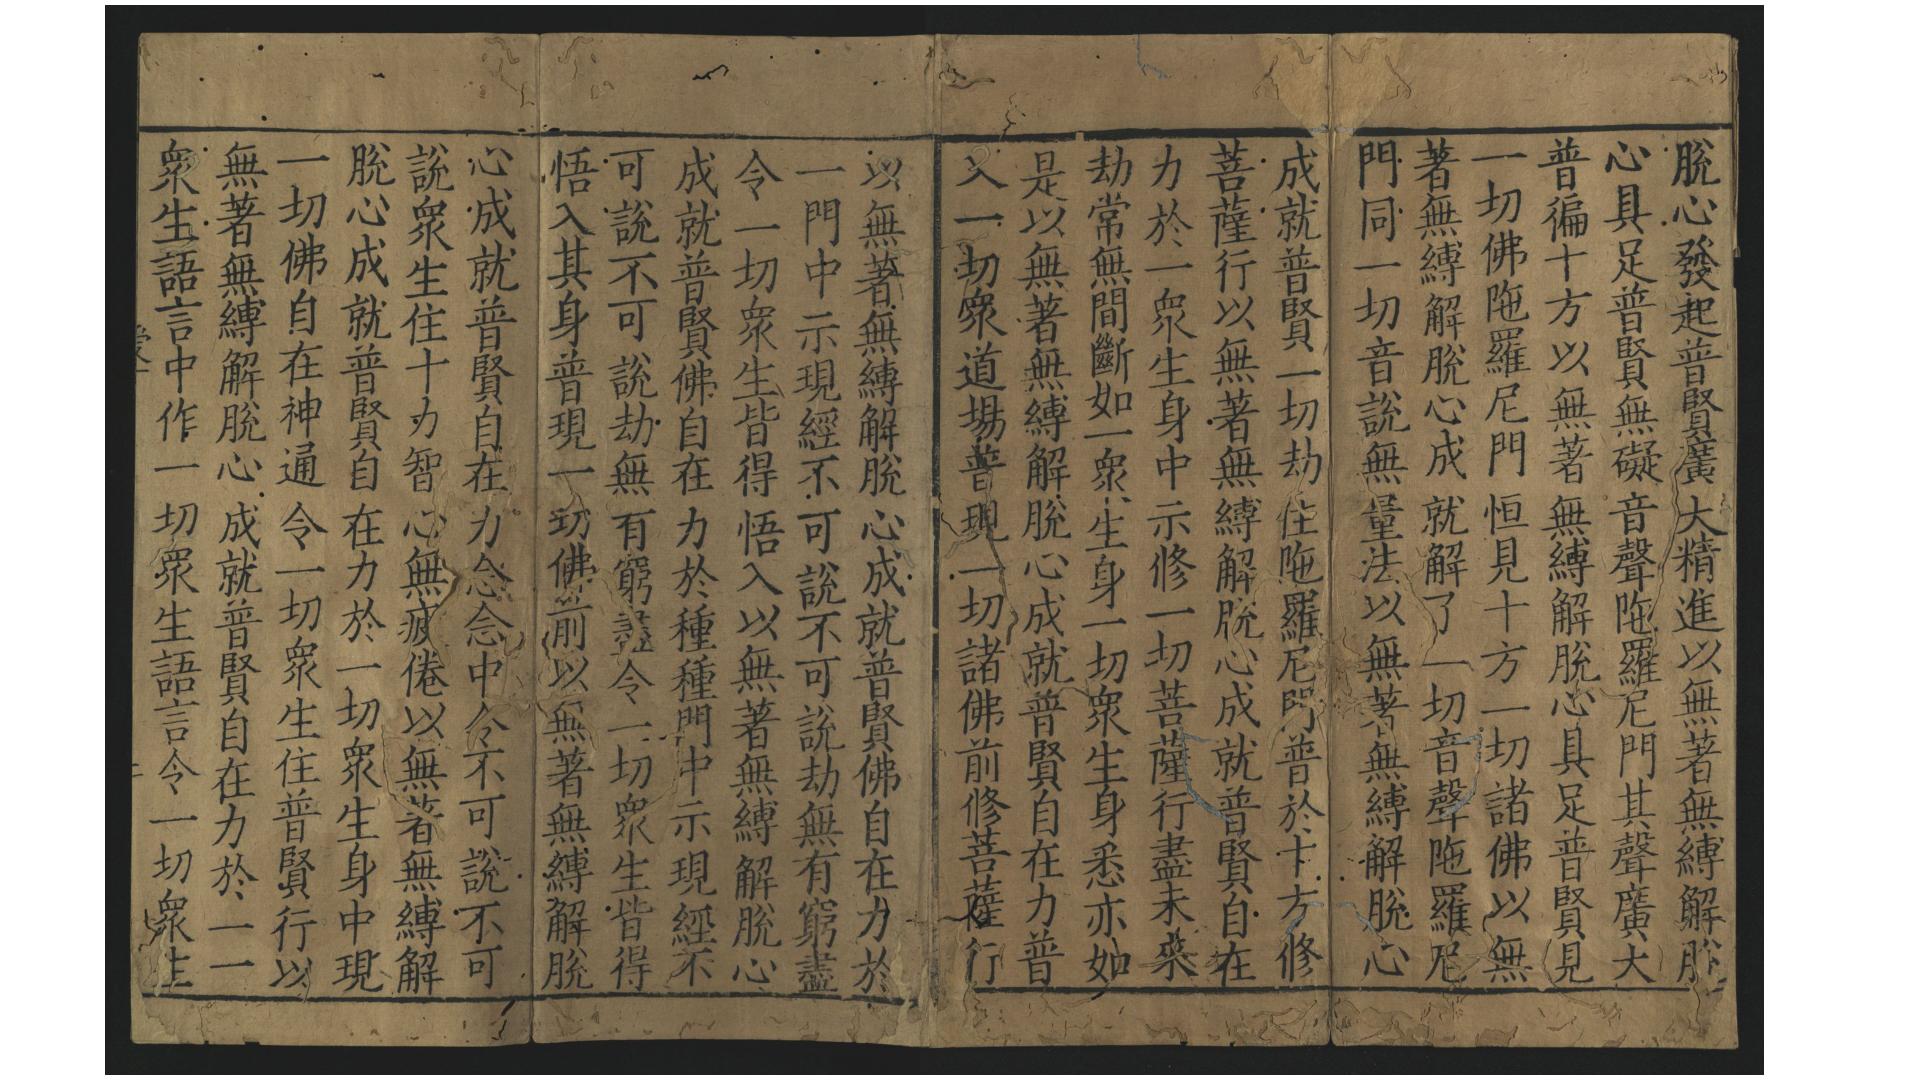 脫心發起普賢廣大精進以無著無縛解脫
心具足普賢無礙音聲陁羅尼門其聲廣大
普徧十方以無著無縛解脫心具足普賢見
一切佛陁羅尼門恒見十方一切諸佛以無
著無縛解脫心成就解了一切音聲陁羅尼
門同一切音說無量法以無著無縛解脫心
成就普賢一切劫住陁羅尼門普於十方修
菩薩行以無著無縛解脫心成就普賢自在
力於一眾生身中示修一切菩薩行盡未來
劫常無間斷如一眾生身一切眾生身悉亦如
是以無著無縛解脫心成就普賢自在力普
入一切眾道場普現一切諸佛前修菩薩行
以無著無縛解脫心成就普賢佛自在力於
一門中示現經不可說不可說劫無有窮盡
令一切眾生皆得悟入以無著無縛解脫心
成就普賢佛自在力於種種門中示現經不
可說不可說劫無有窮盡令一切眾生皆得
悟入其身普現一切佛前以無著無縛解脫
心成就普賢自在力念念中令不可說不可
說眾生住十力智心無疲倦以無著無縛解
脫心成就普賢自在力於一切眾生身中現
一切佛自在神通令一切眾生住普賢行以
無著無縛解脫心成就普賢自在力於一一
眾生語言中作一切眾生語言令一切眾生